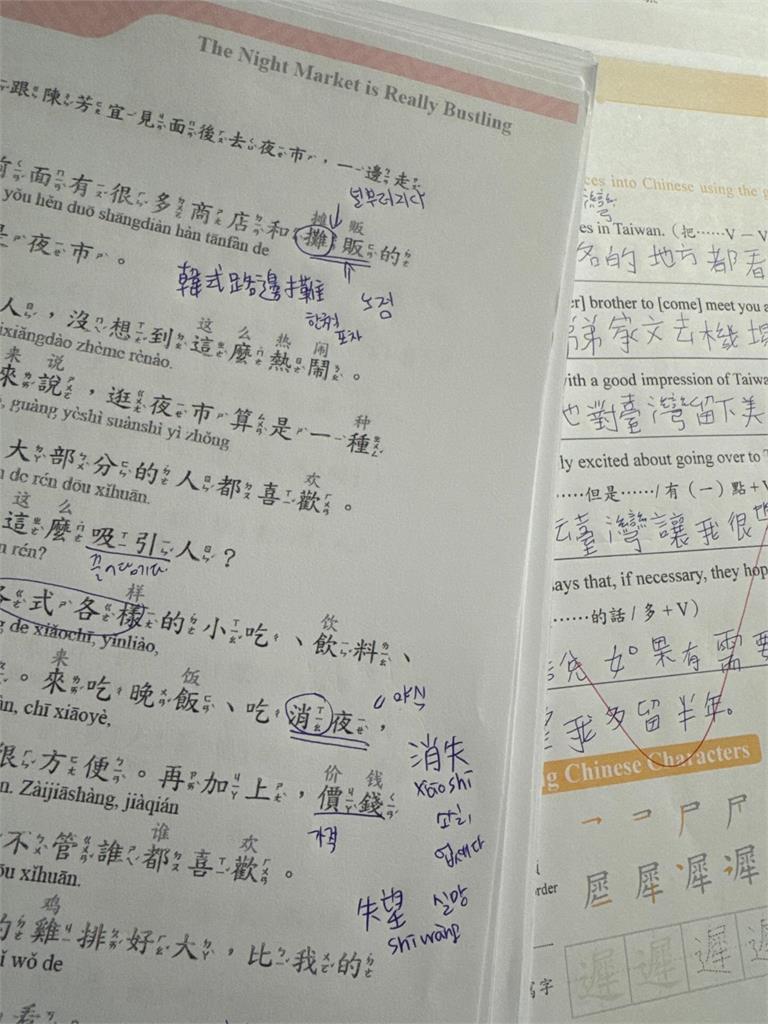 The Night Market is Really Bustling
跟陳芳宜一見面後去夜市,一邊走
널부러지다
摊 贩
前面有很多商店和攤販的
yǒu hěn duō shāngdiàn hàn tānfàn de
是夜市。
韓式路邊攤
노점
한쿡
포차
这 么 热 闹
人,沒想到這麼熱鬧。
ixiǎngdào zhème rènào.
来 说 种
來說,逛夜市算是一種
guàng yèshì suànshì yì zhǒng
欢
大部分的人都喜歡。
n de rén dōu xǐhuān.
这 么
這麼吸引人?
n rén?
끌어당기다
样 饮
各式各樣的小吃、飲料、
g de xiǎochī, yǐnliào,
来 饭
。來吃晚飯、吃消夜,
야식
àn, chī xiāoyè,
消失
xiāoshī
없애다
价 钱
很方便。再加上,價錢
n. Zàijiāshàng, jiàqián
가격
谁 欢
不管誰都喜歡。
ōu xǐhuān.
失望 실망
shīwàng
鸡
的雞排好大,比我的
ǐ wǒ de
看
ces into Chinese using the g
灣
es in Taiwan. (把……V一V
名的地方都看
er] brother to [come] meet you a
弟家文去機場
with a good impression of Taiwa
他對臺灣留下美
ly excited about going over to T
……但是……/有(一)點+V
去臺灣讓我很也
says that, if necessary, they hop
……的話/多+V)
說如果有需要
望我多留半年。
ng Chinese Characters
rder
寫字
遲 遲 遲 遲